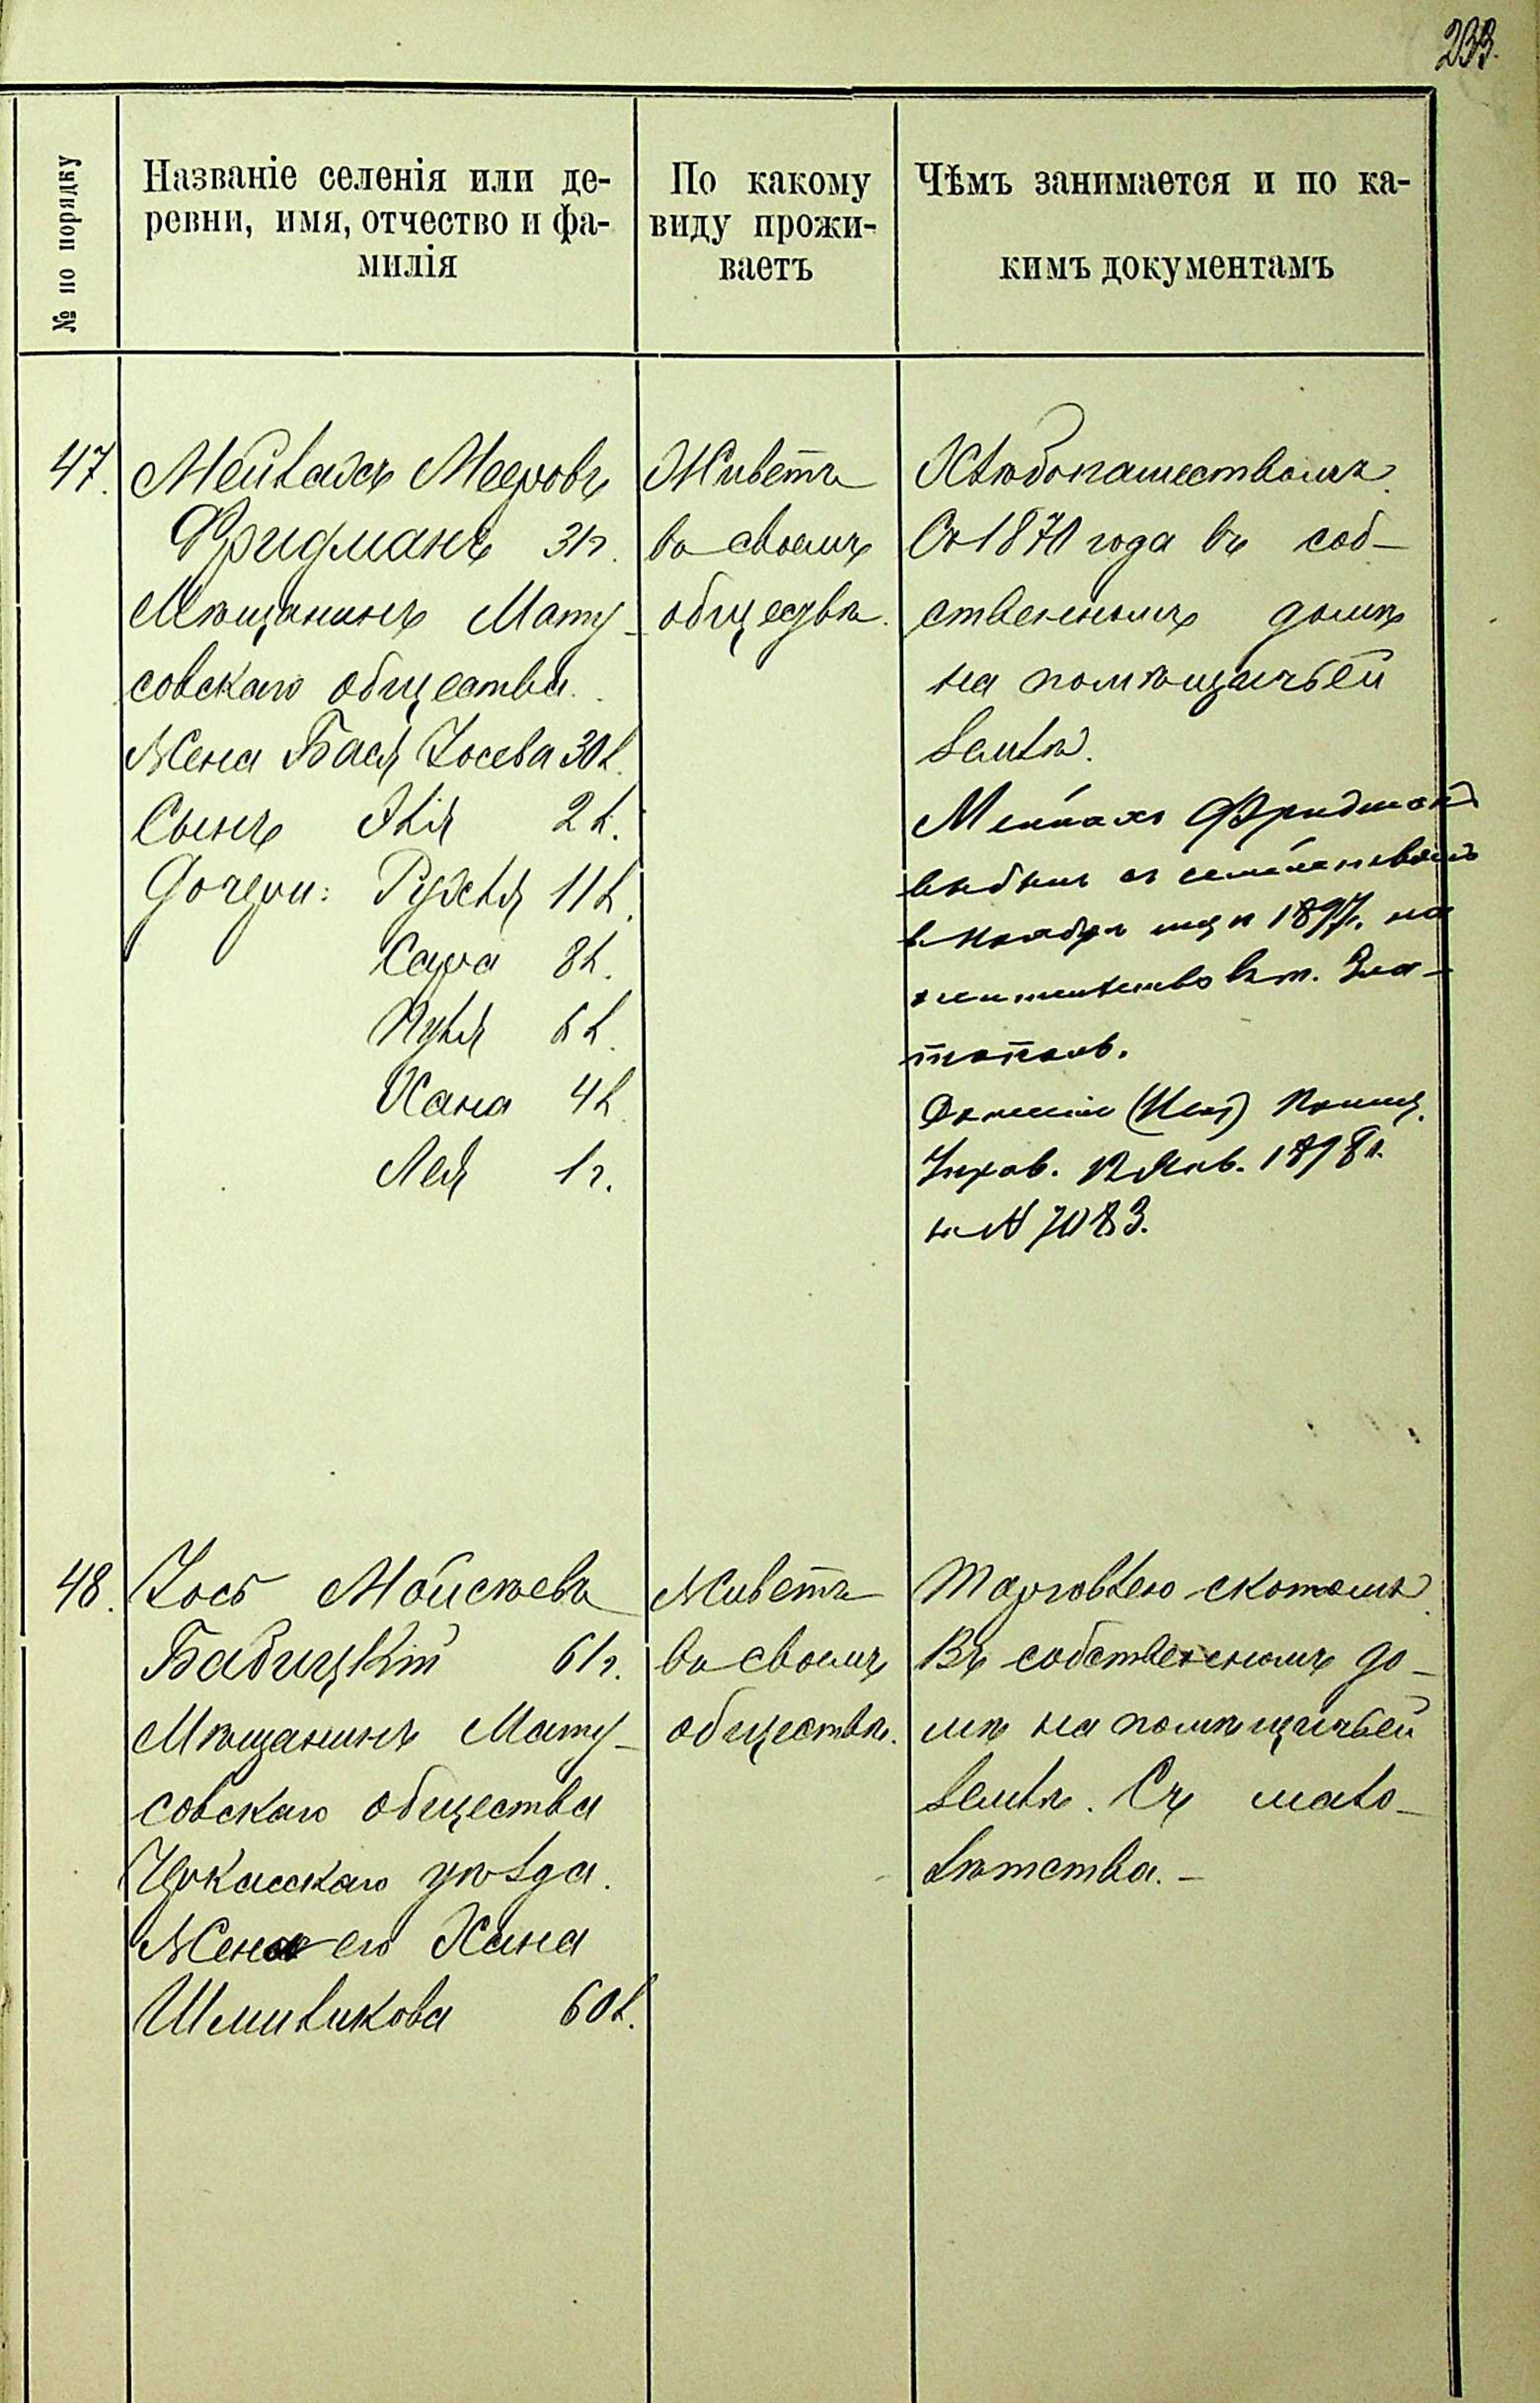 233.
№ по порядку
Названіе селенія или де-
ревни, имя, отчество и фа-
милія
По какому
виду прожи-
ваетъ
Чѣмъ занимается и по ка-
кимъ документамъ
47. Мейлахъ Мееровъ
Фридманъ 31г.
Мѣщанинъ Мату-
совскаго общества.
Жена Бася Іосева 30л.
Сынъ Элія 2л.
Дочери: Рухля 11л.
Сара 8л.
6л.
Хана 4л.
Лея 1г.
Живетъ
въ своемъ
обществѣ.
Хлѣбопашествомъ.
Съ 1870 года въ соб-
ственномъ домѣ
на помѣщичьей
землѣ.
Мейлахъ Фридманъ
выбылъ съ семействомъ
въ Ноябрѣ 1897г. на
жительство въ м. Зла-
тополь.
Янв. 1898г.
№ 7083.
48. Іось Мойсѣевъ
Бабицкій 61г.
Мѣщанинъ Мату-
совскаго общества
Черкасскаго уѣзда.
Жена его Хана
Шмиликова 60л.
Живетъ
въ своемъ
обществѣ.
Торговлею скотомъ.
Въ собственномъ до-
мѣ на помѣщичьей
землѣ. Съ мало-
лѣтства.-